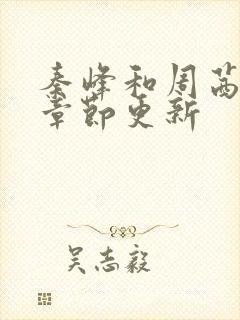 秦峰和周茜
章节更新
吴志毅